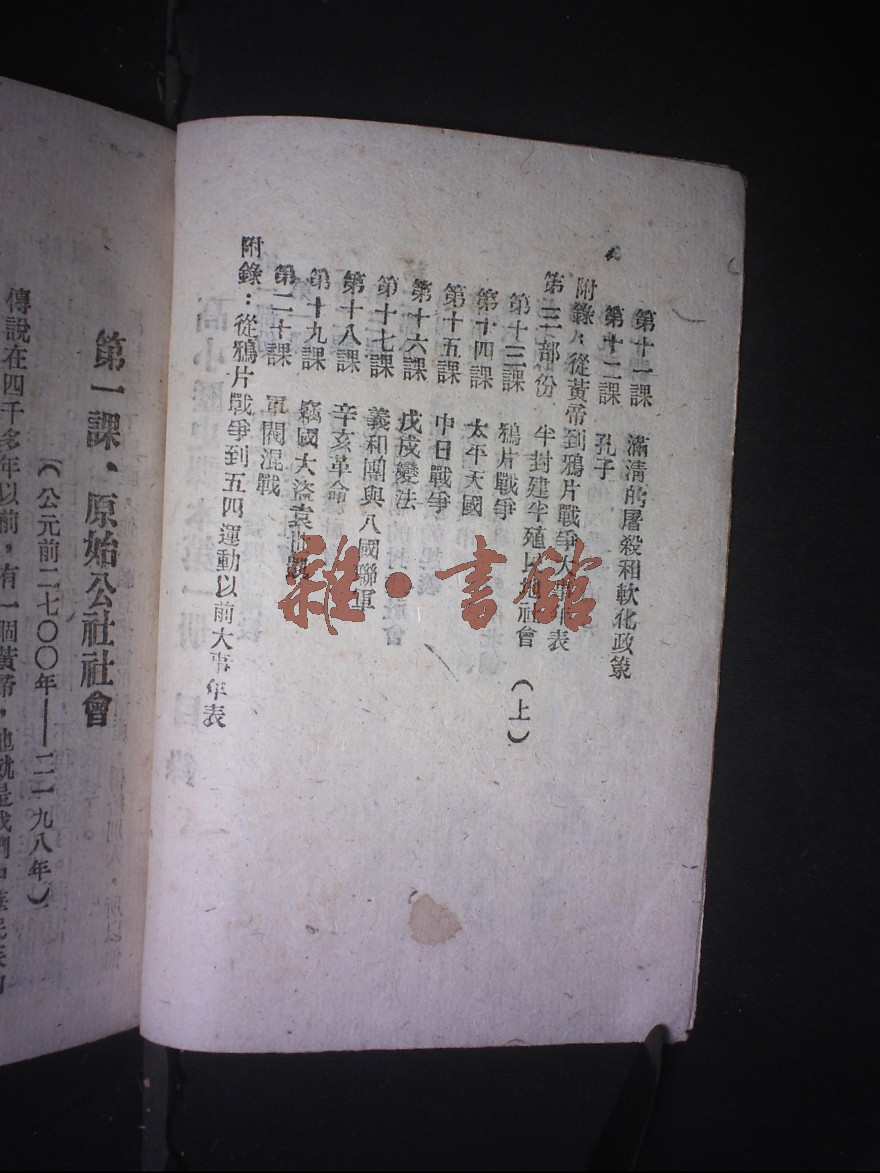 第十一課　滿清的屠殺和軟化政策
第十二課　孔子
附錄：從黃帝到鴉片戰爭大事年表
第三部份　半封建半殖民地社會（上）
第十三課　鴉片戰爭
第十四課　太平天國
第十五課　中日戰爭
第十六課　戊戌變法
第十七課　義和團與八國聯軍
第十八課　辛亥革命
第十九課　竊國大盜袁世凱
第二十課　軍閥混戰
附錄：從鴉片戰爭到五四運動以前大事年表
第一課、原始公社社會
（公元前二七〇〇年——二一九八年）
傳說在四千多年以前，有一個黃帝，他就是我們中華民族的
雜·書館